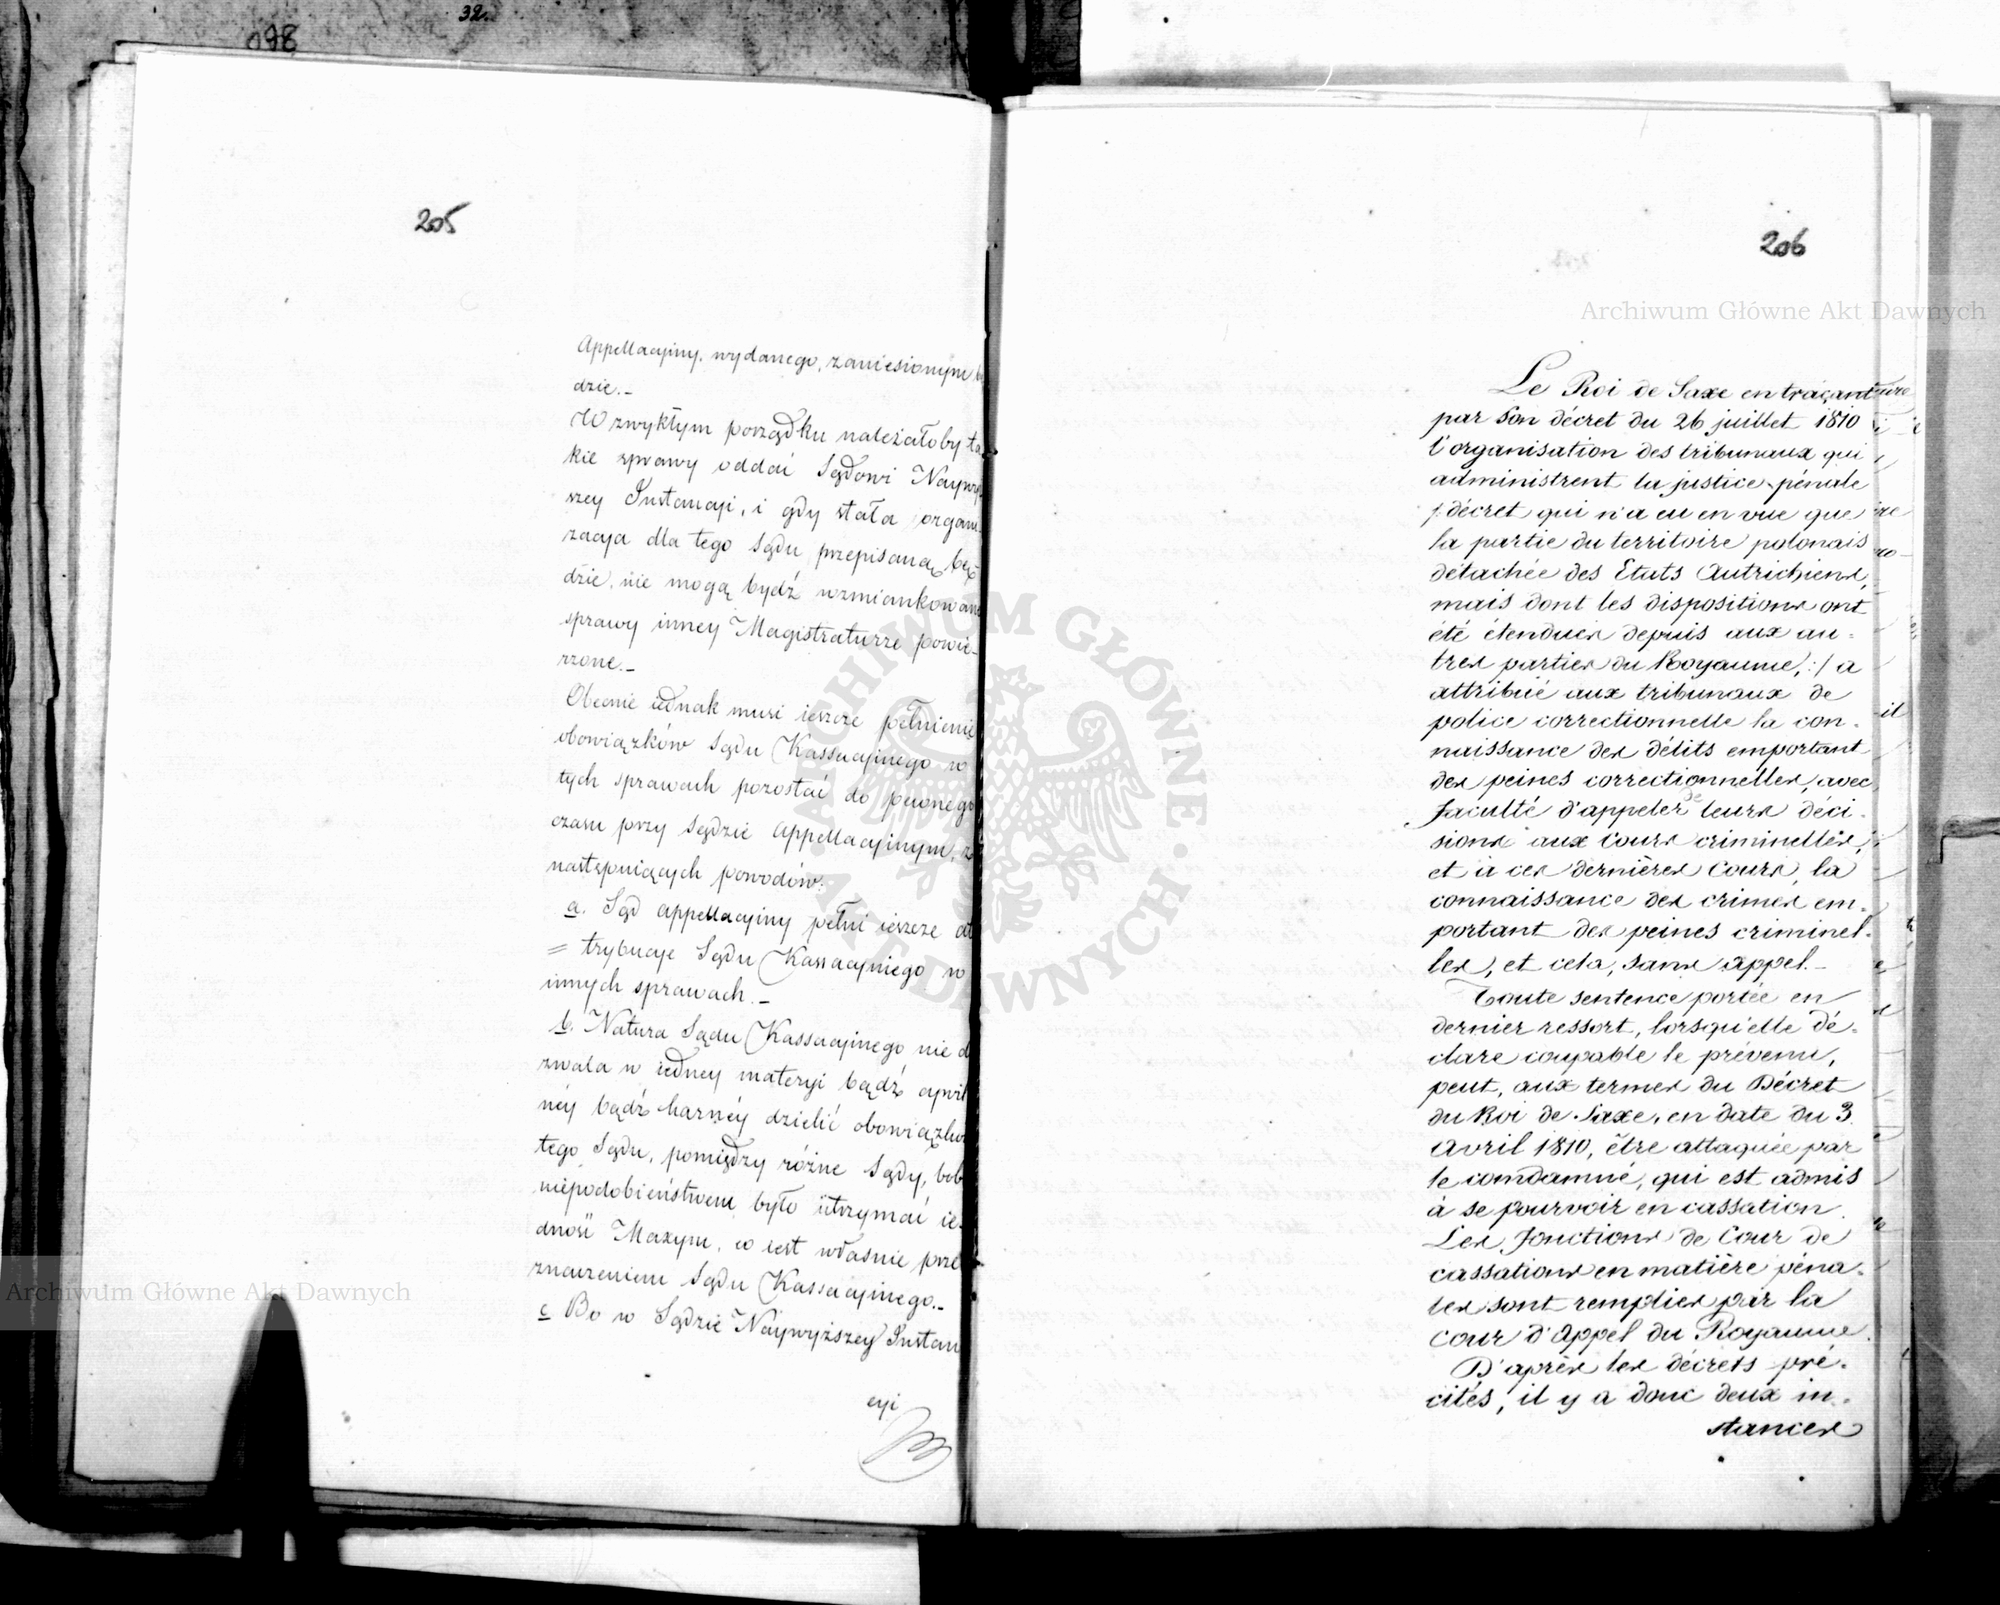 098
32.
205
Appellacyiny, wydanego, zaniesionym bę
dzie._
W zwykłym porządku należałoby ta
kie sprawy oddać Sądowi Naywyż
szey Instancyi, i gdy stała organi
zacya dla tego Sądu przepisaną bę-
dzie, nie mogą bydź wzmiankowane
sprawy inney Magistraturze powie-
rzone._
Obecnie iednak musi ieszcze pełnienie
obowiązków Sądu Kassacyinego w
tych sprawach pozostać do pewnego
czasu przy Sądzie Appellacyinym, z
następuiących powodów:
a. Sąd appellacyiny pełni ieszcze at
= trybucye Sądu Kassacyinego w
innych sprawach._
b. Natura Sądu Kassacyinego nie d
zwala w iedney materyi bądź cywil
néy bądź karnéy dzielić obowiązków
tego Sądu, pomiędzy różne Sądy, bob
niépodobieństwem było utrzymać ie-
dność Maxym, co iest właśnie prze
znaczeniem Sądu Kassacyinego._
c Bo w Sądzie Naywyższey Instan
cyi
206
Archiwum Główne Akt Dawnych
Le Roi de Saxe en traçant
par Son décret du 26 juillet 1810
l'organisation des tribunaux qui
administrent la justice pénale
/: décret qui n'a eu en vue que
la partie du territoire polonais
détachée des Etats Autrichiens,
mais dont les dispositions ont
été étendues depuis aux au-
tres parties du Royaume, :/ a
attribué aux tribunaux de
police correctionnelle la con-
naissance des délits emportant
des peines correctionnelles, avec
faculté d'appeler de leurs déci-
sions aux Cours criminelles,
et à ces dernières Cours, la
connaissance des crimes em-
portant des peines criminel-
les, et cela, sans appel._
Toute sentence portée en
dernier ressort, lorsqu'elle dé-
clare coupable le prévenu,
peut, aux termes du Décret
du Roi de Saxe, en date du 3
Avril 1810, être attaquée par
le comdamné, qui est admis
à se pourvoir en cassation.
Les fonctions de Cour de
cassation en matière péna-
les sont remplies par la
Cour d'Appel du Royaume.
D'après les décrets pré-
cités, il y a donc deux in-
stances
ARCHIWUM GŁÓWNE AKT DAWNYCH
Archiwum Główne Akt Dawnych